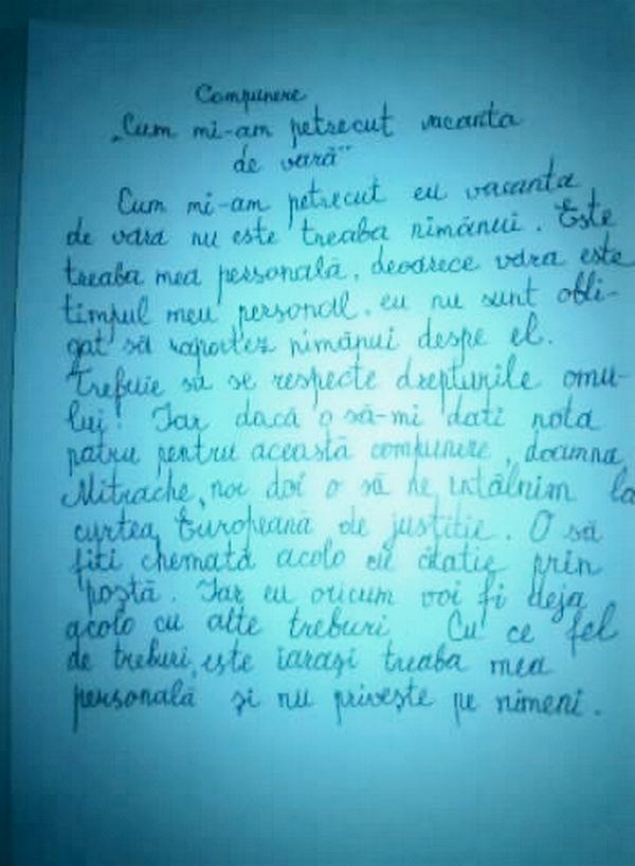 Compunere
„Cum mi-am petrecut vacanta
de vară"
Cum mi-am petrecut eu vacanta
de vara nu este treaba nimănui. Este
treaba mea personală, deoarece vara este
timpul meu personal. eu nu sunt obli-
gat să raportez nimănui despe el.
Trebuie să se respecte drepturile omu-
lui! Iar dacă o să-mi dati nota
patru pentru această compunere, doamna
Mitrache, noi doi o să ne intâlnim la
curtea Europeană de justitie. O să
fiti chemată acolo cu citatie prin
postă. Iar eu oricum voi fi deja
acolo cu alte treburi. Cu ce fel
de treburi, este iarași treaba mea
personală și nu privește pe nimeni.